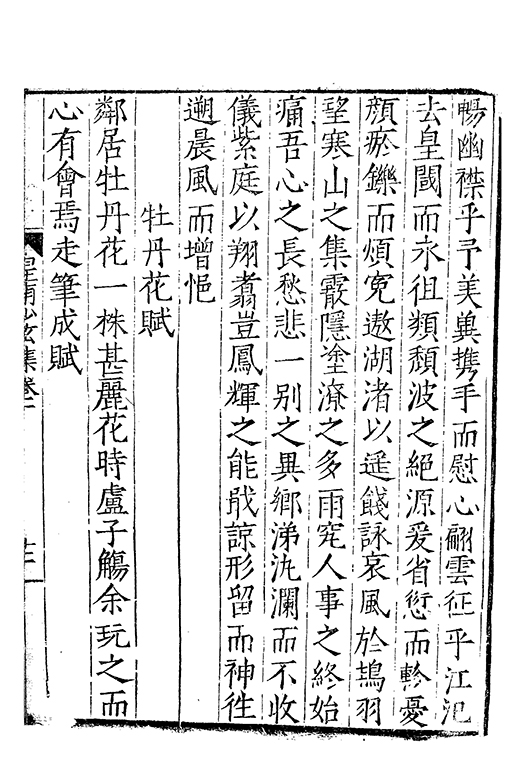 暢幽襟乎予美巽携手而慰心翩雲征乎江汜
去皇閩而永徂類頽波之絕源爰省愆而軫憂
顏瘀鑠而煩寃遨湖渚以遥餞詠哀風於鴂羽
望寒山之集霰隱塗潦之多雨究人事之終始
痛吾心之長愁悲一别之異鄉涕汍瀾而不收
儀紫庭以翔翥豈鳳輝之能戢諒形留而神徃
遡晨風而增悒
牡丹花賦
鄰居牡丹花一株甚麗花時盧子觴余玩之而
心有會焉走筆成賦
皇甫少玄集卷二